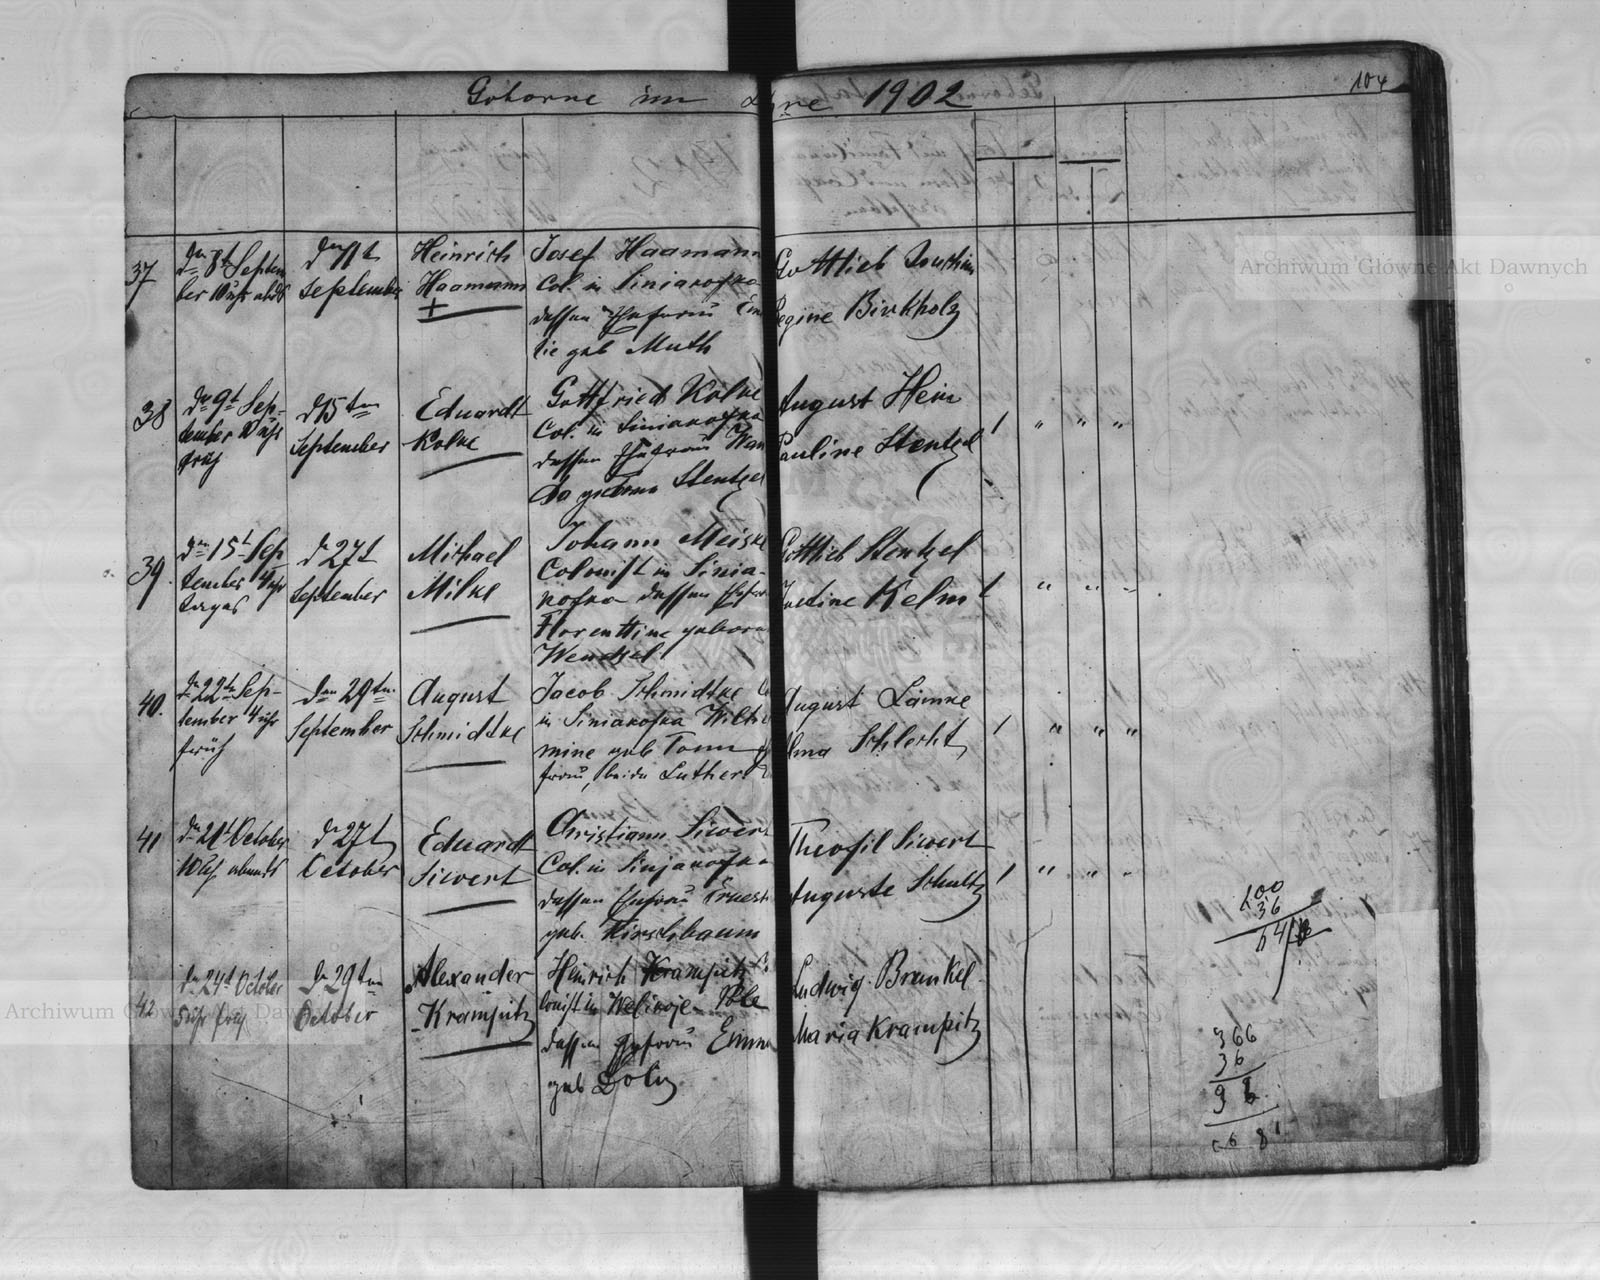 Geborne im Jahre 1902
104
37
den 8t Septem
ber 10 Uhr abds
den 11t
September
Heinrich
Haamann
+
Josef Haamann
Col. in Siniarofka
dessen Ehefrau Emi
lie geb Muth
Gottlieb
Regine Birkholz
38
dn 9t Sep-
tember 10 uhr
früh
d 15ten
September
Eduardt
Kolke
Gottfried Kolke
Col. in Siniarofka
dessen Ehefrau Wan
da geborne Stentzel
August Hein
Pauline Stentzel
1 " " "
39.
dn 15t Sep
tember 4 uhr
tages
dn 27t
September
Michael
Milke
Johann
Colonist in Sinia-
rofka dessen Ehefrau
Florenttine geborn
Wentzel
Gottlieb Stentzel
Justine Kelm
1 " " "
40.
dn 22tn Sep-
tember 4 uhr
früh
den 29tn
September
August
Schmidtke
Jacob Schmidtke
in Siniarofka Wilhel
mine geb Tonn
frau, beide Luther
August Lämke
Alma Schlecht
1 " " "
41
dn 21t October
10 Uh abends
dn 27t
October
Eduardt
Siewert
Christiann Siewert
Col. in Sinjarofka
dessen Ehefrau Ernest
geb. Kirschbaum
Theofil Siewert
Auguste Schultz
1 " " "
42
dn 24t October
5 uhr früh
dn 29ten
October
Alexander
Krampitz
Heinrich Krampitz Co
lonist in Welizoje Pole
dessen Ehefrau Emma
geb
Ludwig Brunkel
Maria Krampitz
100
36
64
366
36
Archiwum Główne Akt Dawnych
Archiwum Główne Akt Dawnych